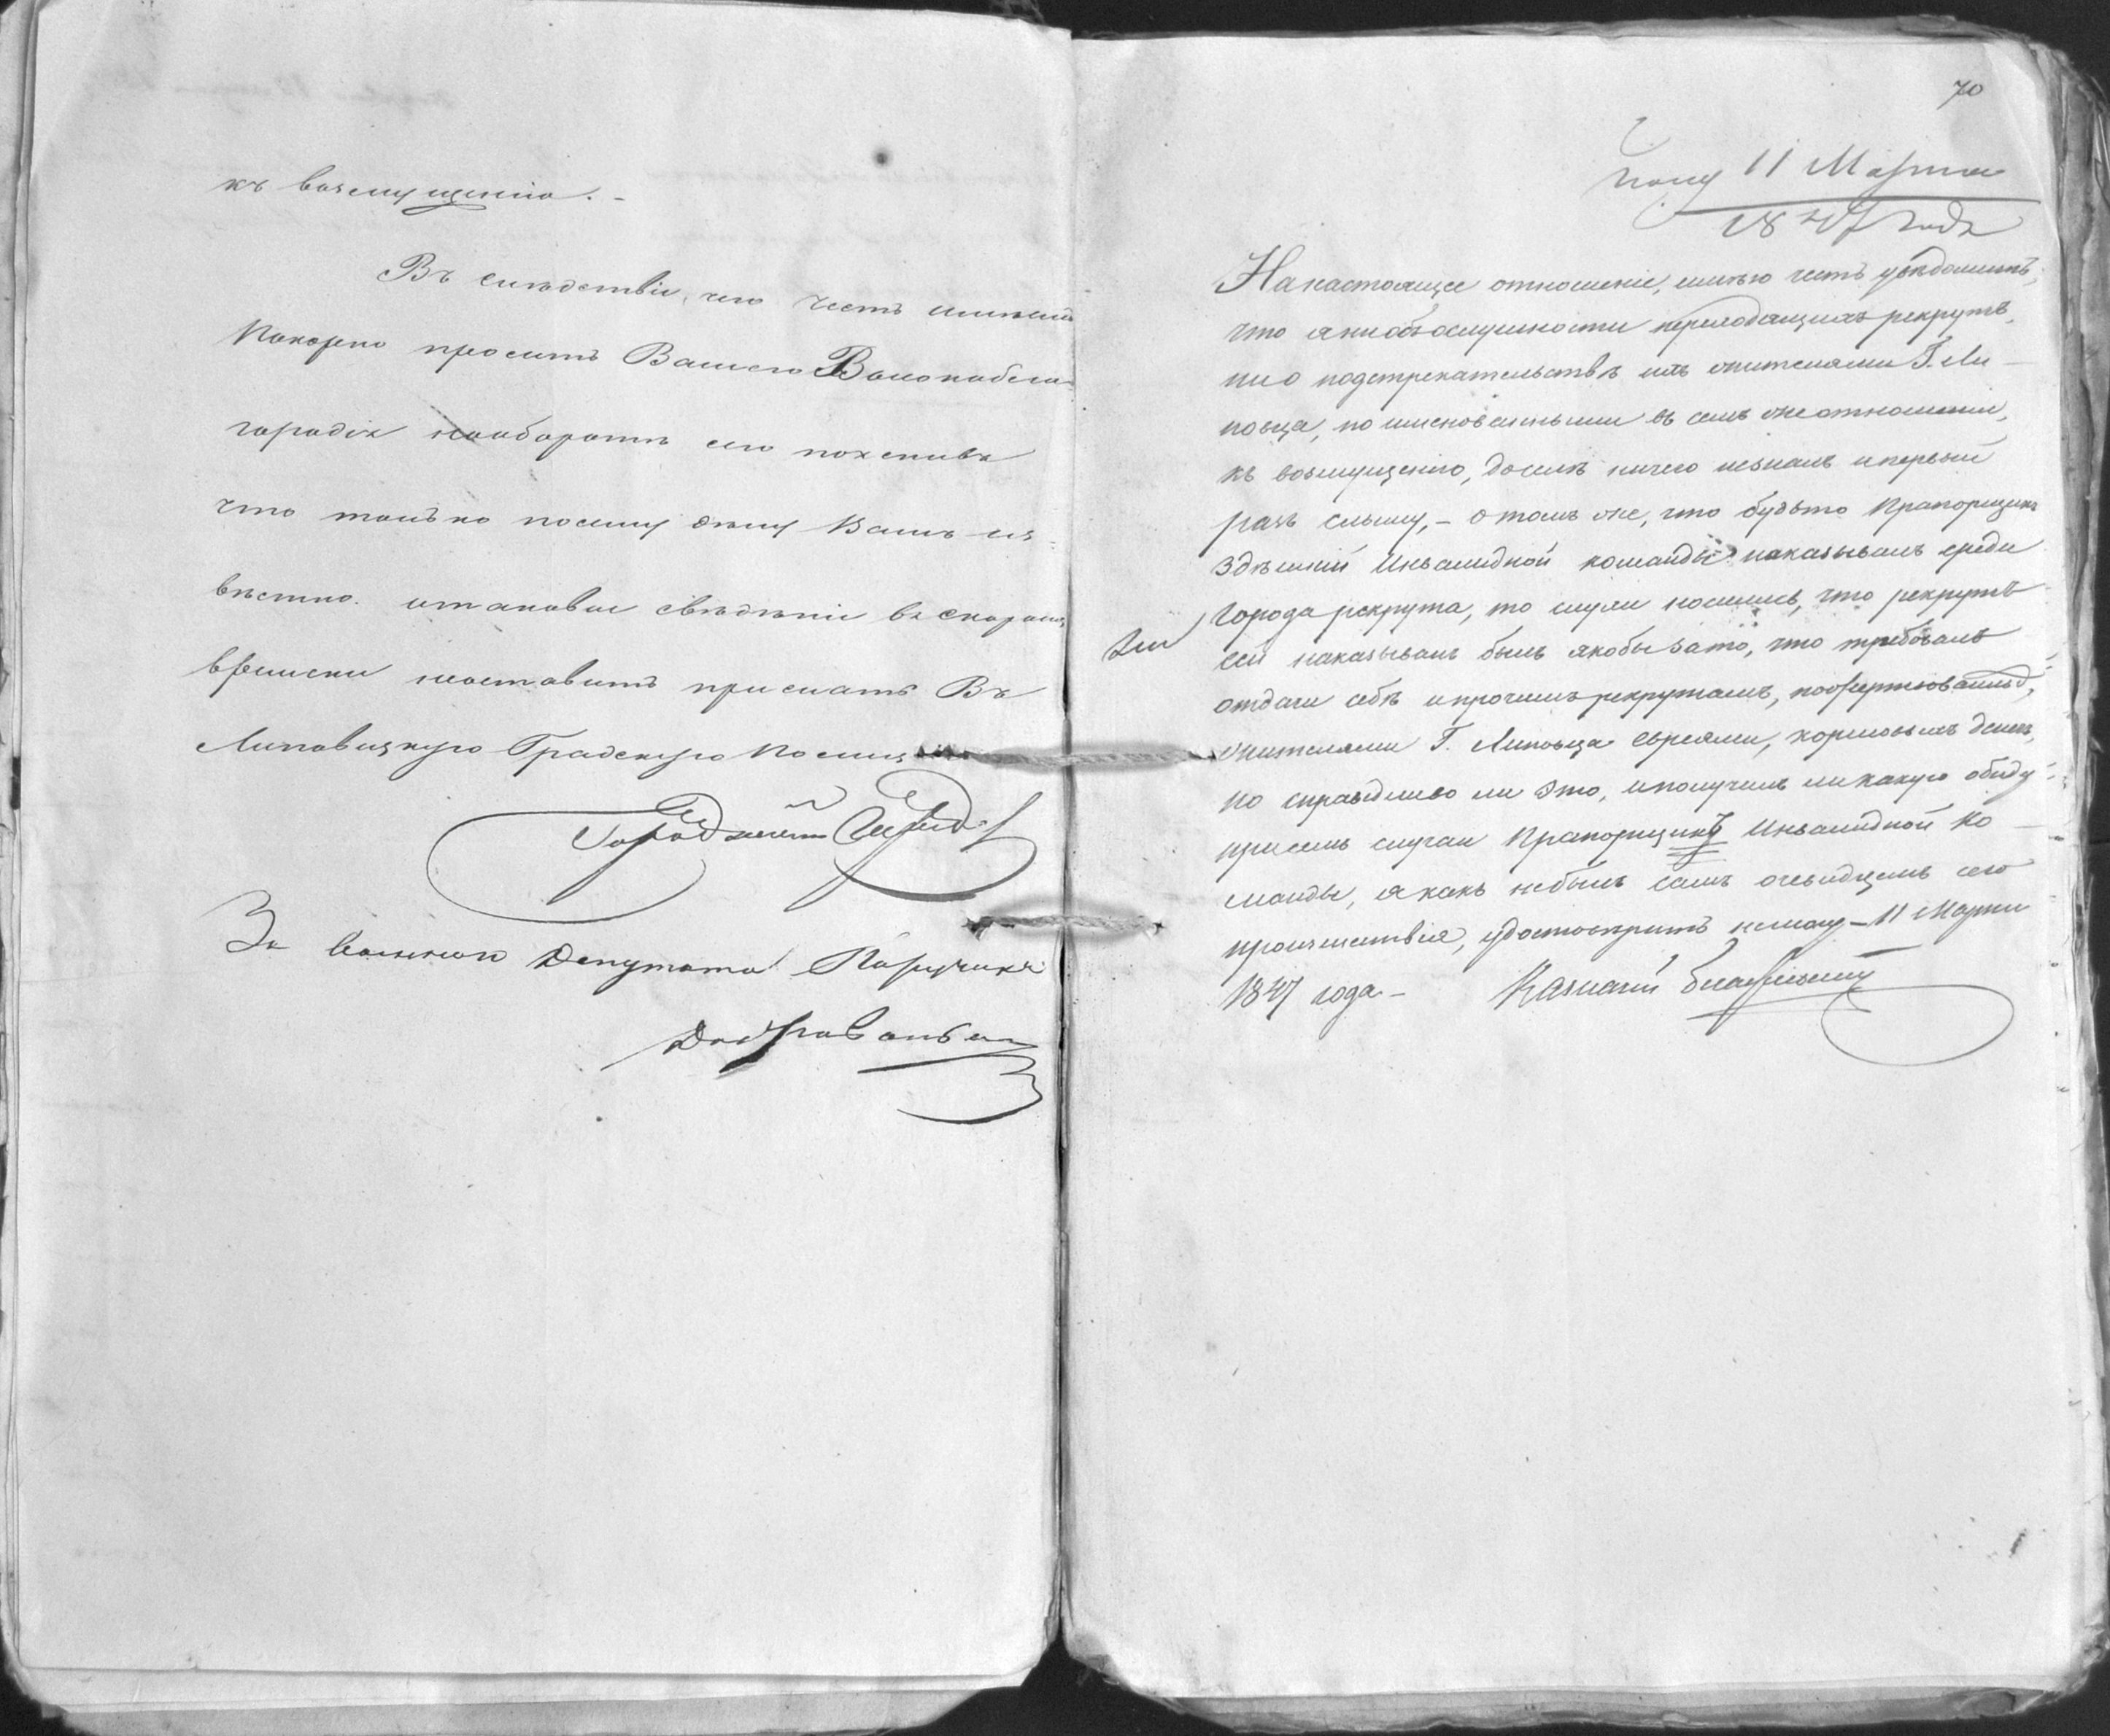 къ возмущенію. -
Въ слѣдствіи, чего честь имѣемъ
Покорно просить Вашего Высокобла-
городія наоборотѣ сего пояснивъ
что только посему дѣлу Вамъ из=
вѣстно. итаковое свѣдѣніе въ скоромъ
времени неоставить прислать Въ
Липовецкую Градскую Полицію
Городничій
За военнаго Депутата Порутчикъ
70
Полу 11 Марта
1847 года
На настоящее отношеніе, имѣю честь увѣдомить,
что я ни объ ослушности переходящихъ рекрутъ,
ни о подстрекательствѣ ихъ жителями Г. Ли-
повца, поименованными въ семъ же отношеніи,
къ возмущенію, доселѣ ничего незналъ и первый
разъ слышу, - о томъ же, что будьто Прапорщикъ
Здѣшней Инвалидной команды наказывалъ среди
Города рекрута, то слухи носились, что рекрутъ
сей наказыванъ былъ якобы зато, что требовалъ
отдачи себѣ и прочимъ рекрутамъ, пожертвованныхъ,
жителями Г. Липовца Евреями, кормовыхъ денегъ,
но справедливо ли это, и получилъ ли какую обиду
присемъ случаи Прапорщикъ Инвалидной Ко-
манды, я какъ небылъ самъ очевидцемъ сего
происшествія, удостовѣрить немогу - 11 Марта
1847 года - Казначей